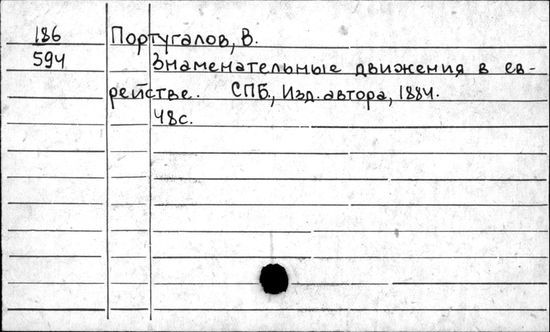 186 Португалов, В.
594 Знаменательные движения в ев-
рействе. СПБ., Изд. автора, 1884.
48с.